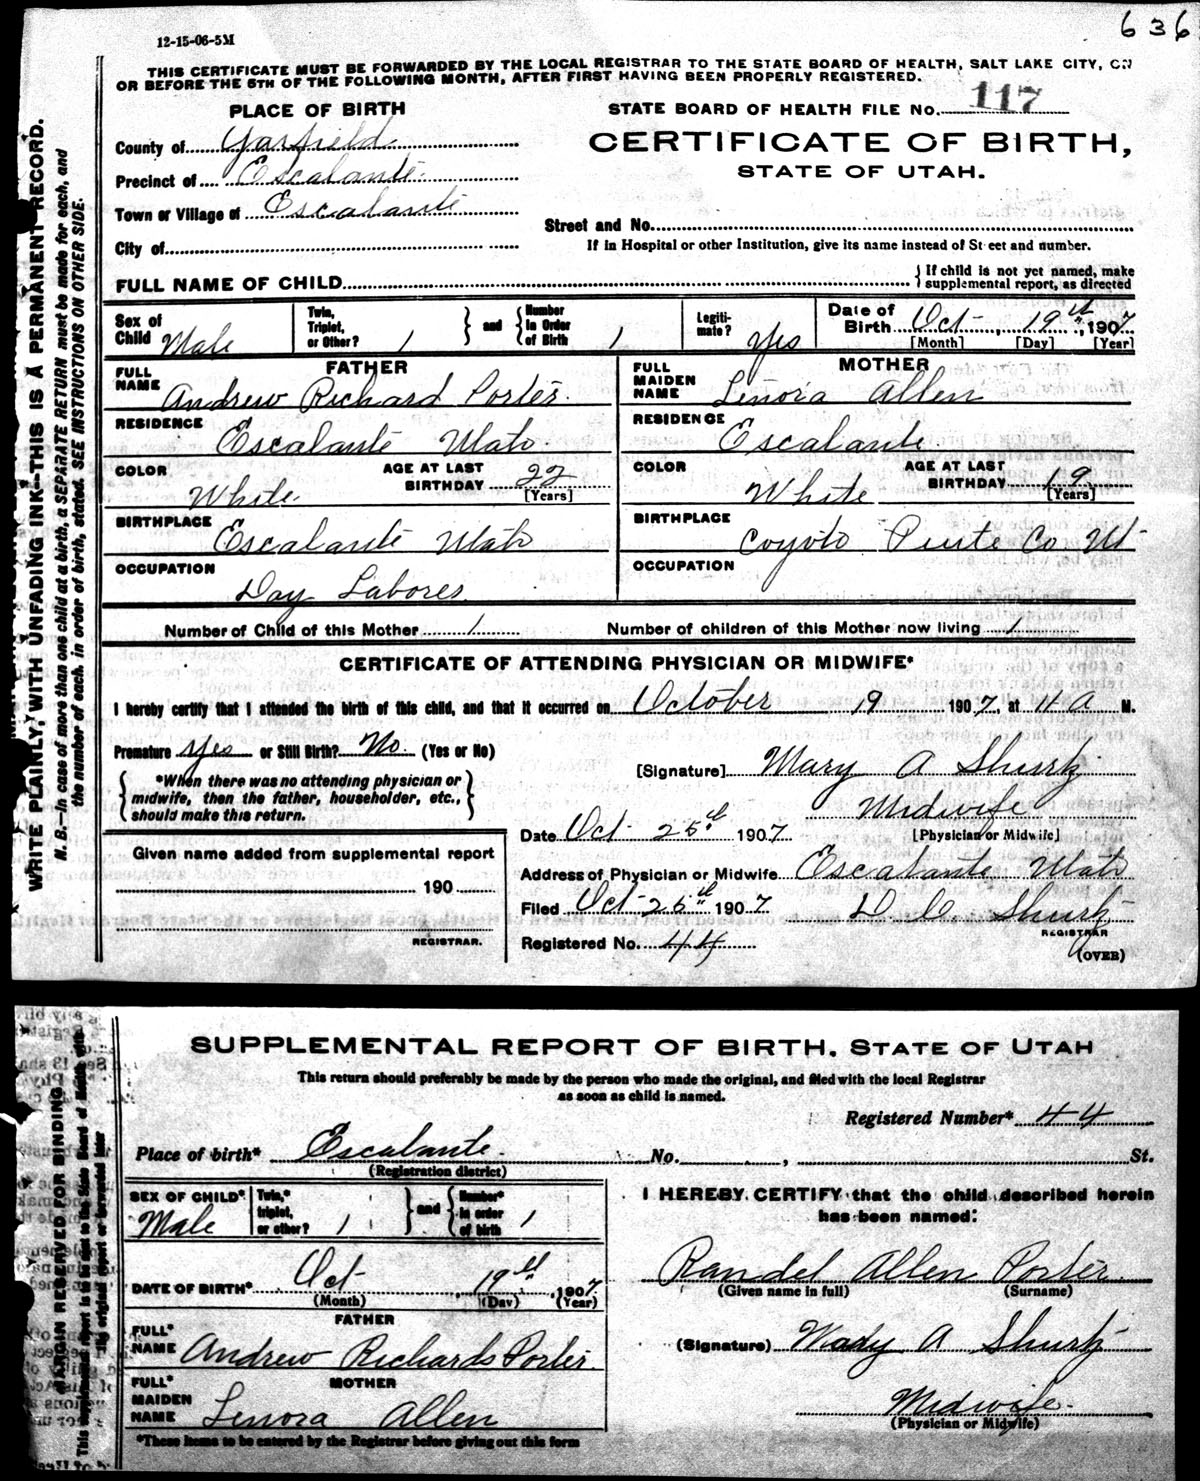 636
12-15-06-5M
THIS CERTIFICATE MUST BE FORWARDED BY THE LOCAL REGISTRAR TO THE STATE BOARD OF HEALTH, SALT LAKE CITY, ON
OR BEFORE THE 5TH OF THE FOLLOWING MONTH, AFTER FIRST HAVING BEEN PROPERLY REGISTERED.
WRITE PLAINLY, WITH UNFADING INK—THIS IS A PERMANENT RECORD.
N. B.—In case of more than one child at a birth, a SEPARATE RETURN must be made for each, and
the number of each, in order of birth, stated. SEE INSTRUCTIONS ON OTHER SIDE.
PLACE OF BIRTH
County of Garfield
Precinct of Escalante.
Town or Village of Escalante
City of
STATE BOARD OF HEALTH FILE No. 117
CERTIFICATE OF BIRTH,
STATE OF UTAH.
Street and No.
If in Hospital or other Institution, give its name instead of Street and number.
FULL NAME OF CHILD
If child is not yet named, make
supplemental report, as directed
Sex of Child Male
Twin, Triplet, or Other? 1
and
Number in Order of Birth 1
Legiti-mate? Yes
Date of Birth Oct 19th, 1907
[Month] [Day] [Year]
FATHER
FULL NAME Andrew Richard Porter.
RESIDENCE Escalante Utah
COLOR White
AGE AT LAST BIRTHDAY 22
[Years]
BIRTHPLACE Escalante Utah
OCCUPATION Day Laborer
MOTHER
FULL MAIDEN NAME Lenora Allen
RESIDENCE Escalante
COLOR White
AGE AT LAST BIRTHDAY 19
[Years]
BIRTHPLACE Coyoto Piute Co Ut
OCCUPATION
Number of Child of this Mother 1
Number of children of this Mother now living 1
CERTIFICATE OF ATTENDING PHYSICIAN OR MIDWIFE*
I hereby certify that I attended the birth of this child, and that it occurred on October 19 1907, at 11 A M.
Premature yes or Still Birth? No. (Yes or No)
*When there was no attending physician or
midwife, then the father, householder, etc.,
should make this return.
[Signature] Mary A Shurtz
Midwife
[Physician or Midwife]
Date Oct 25th 1907
Address of Physician or Midwife Escalante Utah
Filed Oct 25th 1907
D. C. Shurtz
REGISTRAR
Registered No. 44
(OVER)
Given name added from supplemental report
190
REGISTRAR.
SUPPLEMENTAL REPORT OF BIRTH. STATE OF UTAH
This return should preferably be made by the person who made the original, and filed with the local Registrar
as soon as child is named.
MARGIN RESERVED FOR BINDING
Registered Number* 44
Place of birth* Escalante.
(Registration district)
No. , St.
SEX OF CHILD* Male
Twin,* triplet, or other? 1
and
Number* in order of birth 1
DATE OF BIRTH* Oct 19th, 1907
(Month) (Day) (Year)
FATHER
FULL* NAME Andrew Richards Porter.
MOTHER
FULL* MAIDEN NAME Lenora Allen
*These items to be entered by the Registrar before giving out this form
I HEREBY CERTIFY that the child described herein
has been named:
Randel Allen Porter
(Given name in full) (Surname)
(Signature) Mary A Shurtz
Midwife.
(Physician or Midwife)